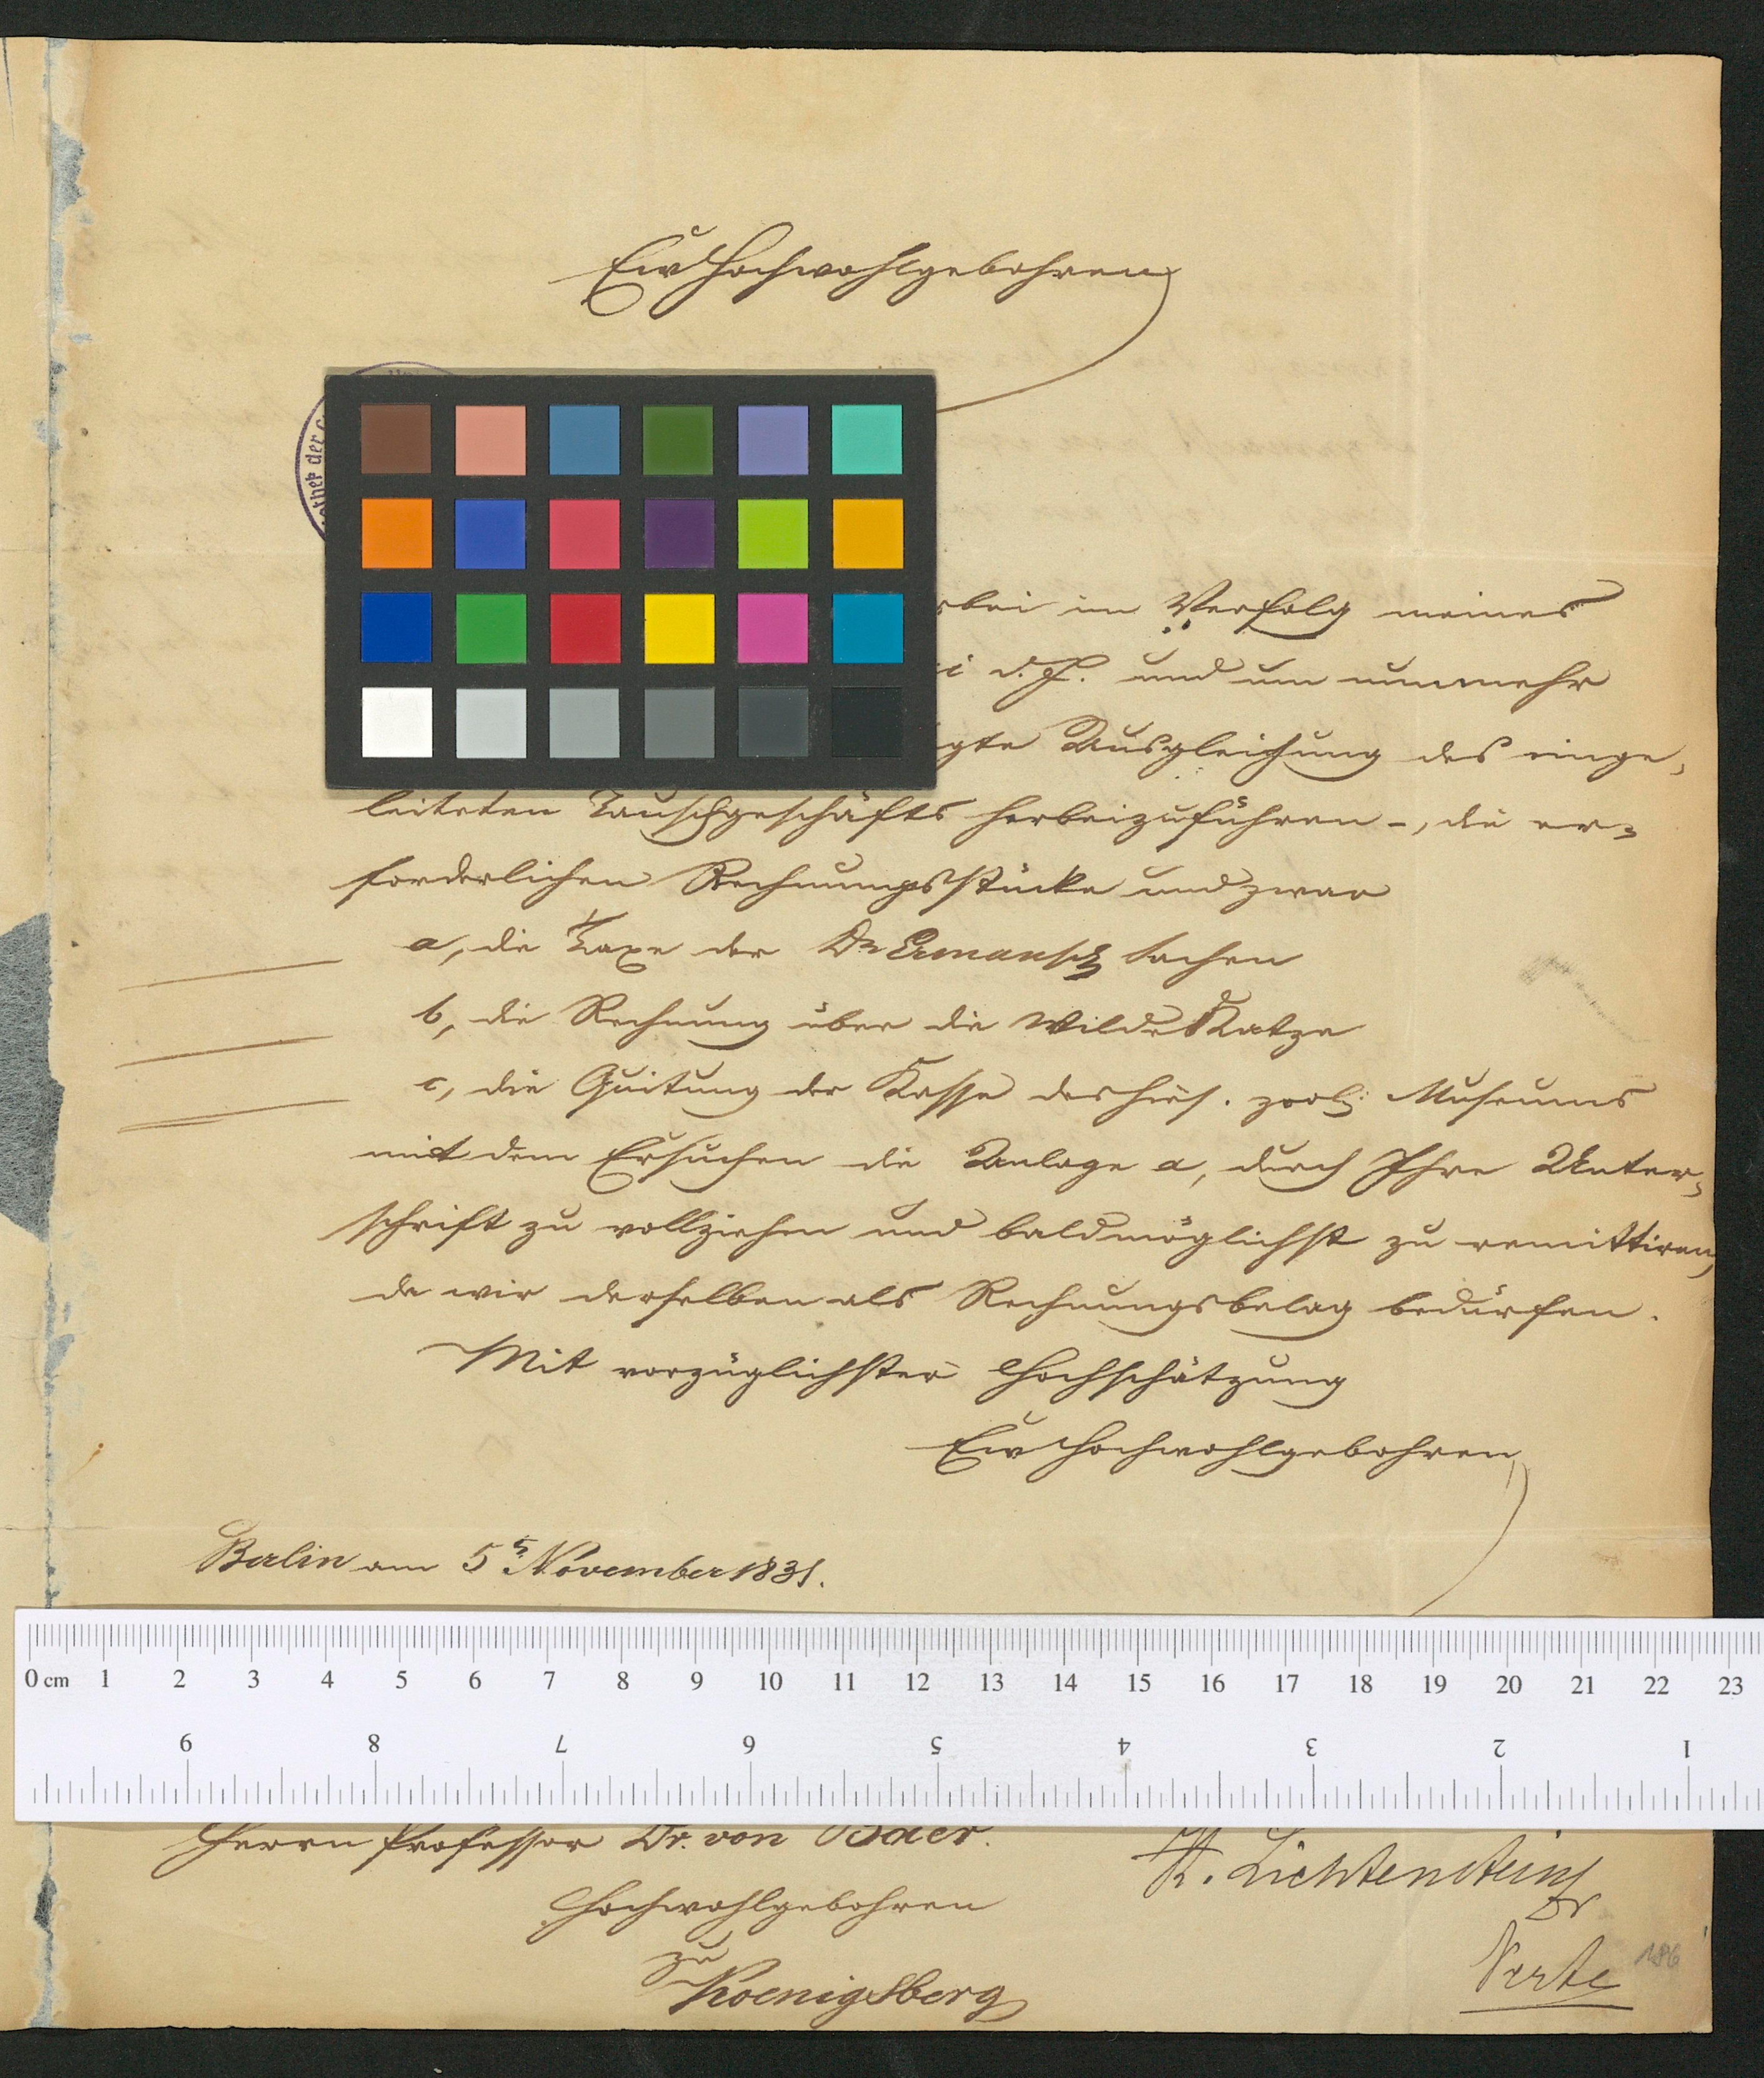 Ew Hochwohlgebohren
bei im Verfolg meines
i d. J. und um nunmehr
gte Ausgleichung des einge-
leiteten Tauschgeschäfts herbeizuführen -, die er-
forderlichen Rechnungsstücke und zwar
a, die Taxe der Dr Ermansch Sachen
b, die Rechnung über die Wilde Katze
c, die Quitung der Kasse des hies. zool: Museums
mit dem Ersuchen die Anlage a, durch Ihre Unter-
schrift zu vollziehen und baldmöglichst zu remittiren,
da wir derselben als Rechnungsbelag bedürfen.
Mit vorzüglichster Hochschätzung
Ew Hochwohlgebohren
Berlin am 5t November 1831.
0 cm 1 2 3 4 5 6 7 8 9 10 11 12 13 14 15 16 17 18 19 20 21 22 23
9 8 7 6 5 4 3 2 1
Herrn Professor Dr. von Baer.
Hochwohlgebohren
zu
Koenigsberg
H. Lichtenstein
Verte
186